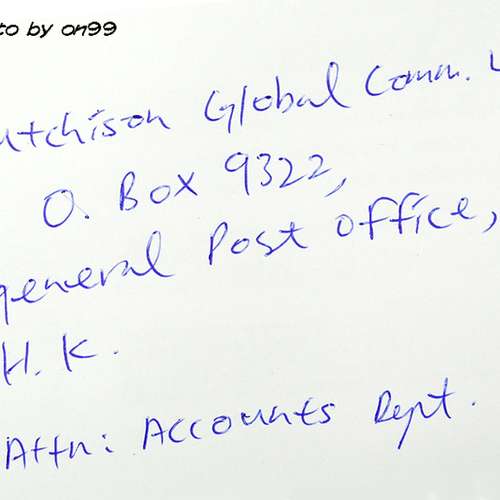 to by on99
utchison Global Comm.
O. Box 9322,
general Post Office,
H.K.
Attn: Accounts Dept.